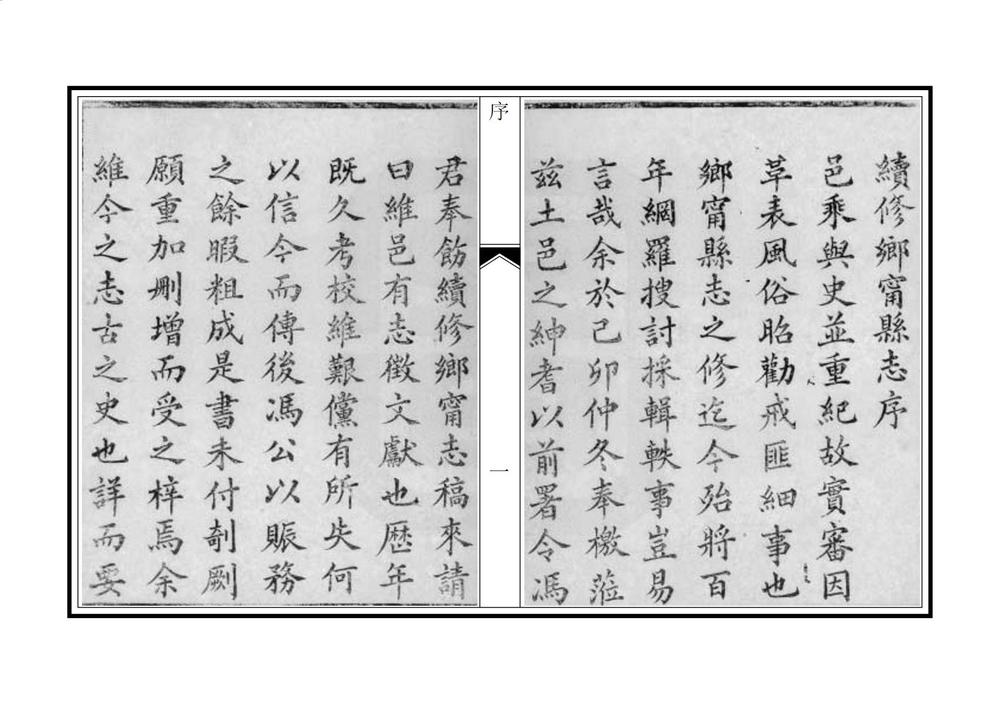 續修鄉甯縣志序
邑乘與史並重紀故實審因
革表風俗昭勸戒匪細事也
鄉甯縣志之修迄今殆將百
年網羅搜討採輯軼事豈易
言哉余於己卯仲冬奉檄蒞
茲土邑之紳耆以前署令馮
序
一
君奉飭續修鄉甯志稿來請
曰維邑有志徵文獻也歷年
既久考校維艱儻有所失何
以信今而傳後馮公以賑務
之餘暇粗成是書未付剞劂
願重加刪增而受之梓焉余
維今之志古之史也詳而要